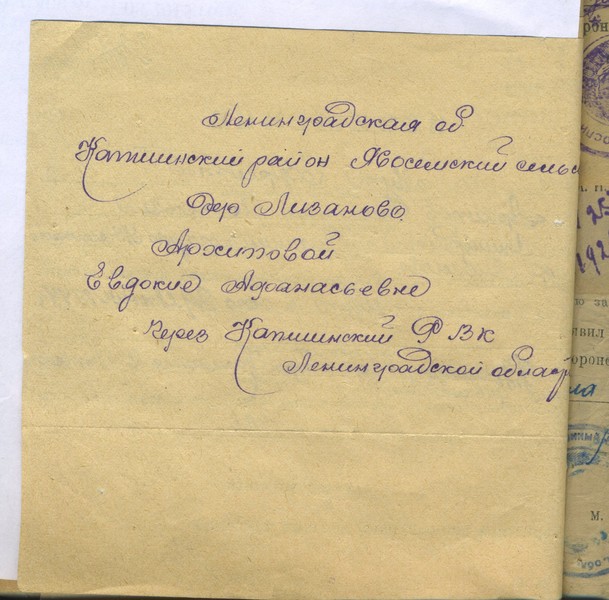 Ленинградская об.
Капшинский район Явосемский сельс
дер Лизаново.
Архиповой
Евдокие Афанасьевне
через Капшинский РВК
Ленинградской област